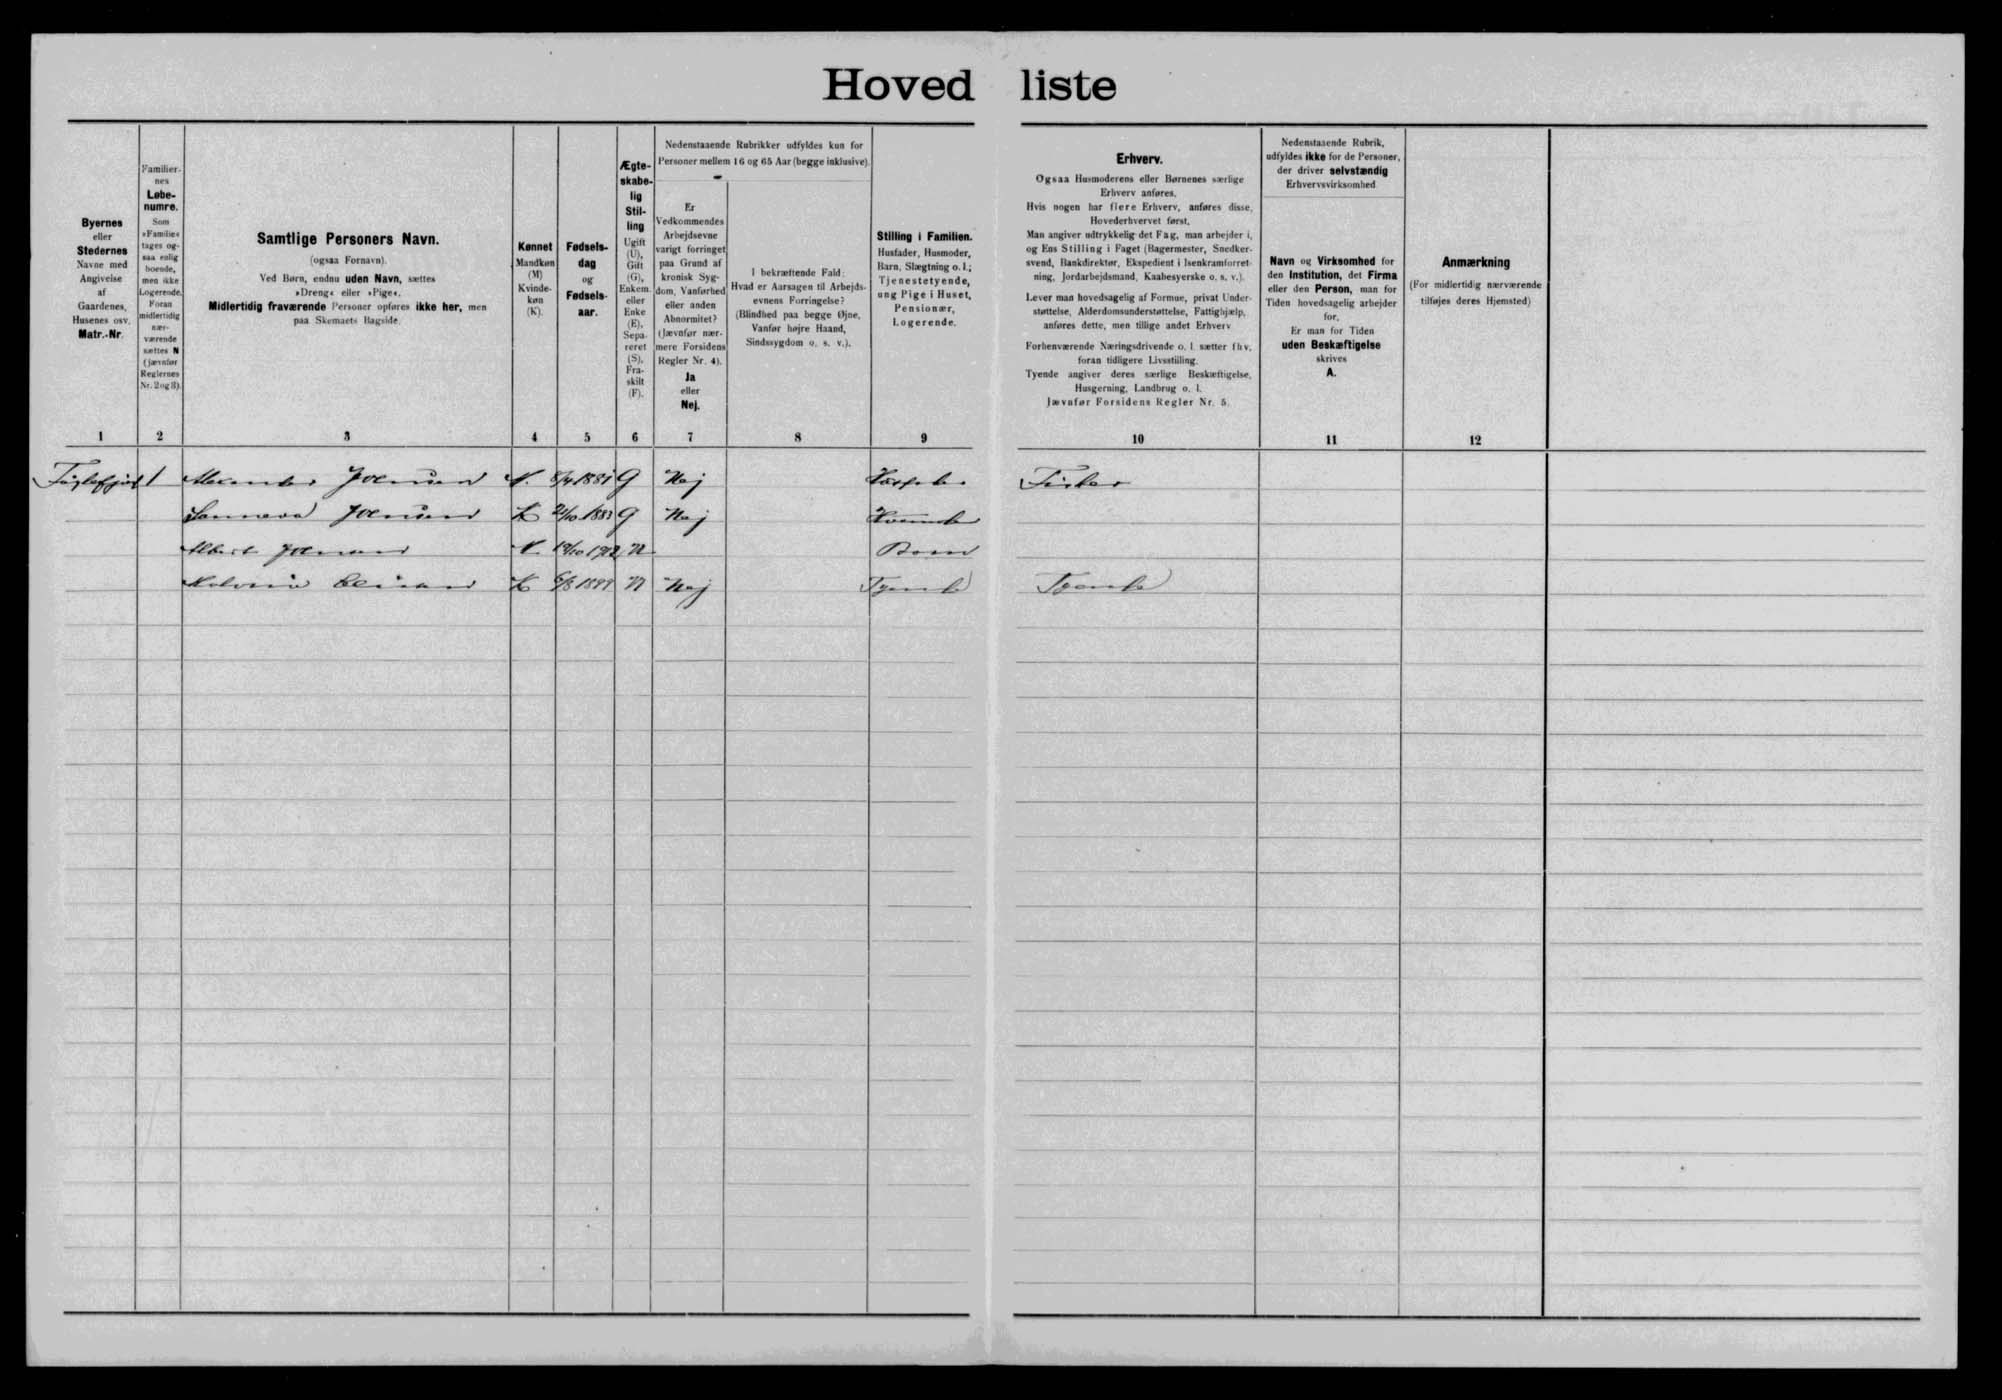 Hovedliste
Byernes
eller
Stedernes
Navne med
Angivelse
af
Gaardenes,
Husenes osv.
Matr.-Nr.
Familier-
nes
Løbe-
numre.
Som
»Familie«
tages og-
saa enlig
boende,
men ikke
Logerende.
Foran
midlertidig
nær-
værende
sættes N
(jævnfør
Reglernes
Nr. 2 og 3).
Samtlige Personers Navn.
(ogsaa Fornavn).
Ved Børn, endnu uden Navn, sættes
»Dreng« eller »Pige«.
Midlertidig fraværende Personer opføres ikke her, men
paa Skemaets Bagside.
Kønnet
Mandkøn
(M)
Kvinde-
køn
(K).
Fødsels-
dag
og
Fødsels-
aar.
Ægte-
skabe-
lig
Stil-
ling
Ugift
(U),
Gift
(G),
Enkem.
eller
Enke
(E),
Sepa-
reret
(S),
Fra-
skilt
(F).
Nedenstaaende Rubrikker udfyldes kun for
Personer mellem 16 og 65 Aar (begge inklusive).
Er
Vedkommendes
Arbejdsevne
varigt forringet
paa Grund af
kronisk Syg-
dom, Vanførhed
eller anden
Abnormitet?
(Jævnfør nær-
mere Forsidens
Regler Nr. 4).
Ja
eller
Nej.
I bekræftende Fald:
Hvad er Aarsagen til Arbejds-
evnens Forringelse?
(Blindhed paa begge Øjne,
Vanfør højre Haand,
Sindssygdom o. s. v.).
Stilling i Familien.
Husfader, Husmoder,
Barn, Slægtning o. l.;
Tjenestetyende,
ung Pige i Huset,
Pensionær,
Logerende.
Erhverv.
Ogsaa Husmoderens eller Børnenes særlige
Erhverv anføres.
Hvis nogen har flere Erhverv, anføres disse,
Hovederhvervet først.
Man angiver udtrykkelig det Fag, man arbejder i,
og Ens Stilling i Faget (Bagermester, Snedker-
svend, Bankdirektør, Ekspedient i Isenkramforret-
ning, Jordarbejdsmand, Kaabesyerske o. s. v.).
Lever man hovedsagelig af Formue, privat Under-
støttelse, Alderdomsunderstøttelse, Fattighjælp,
anføres dette, men tillige andet Erhverv.
Forhenværende Næringsdrivende o. l. sætter fhv.
foran tidligere Livsstilling.
Tyende angiver deres særlige Beskæftigelse,
Husgerning, Landbrug o. l.
Jævnfør Forsidens Regler Nr. 5.
Nedenstaaende Rubrik,
udfyldes ikke for de Personer,
der driver selvstændig
Erhvervsvirksomhed
Navn og Virksomhed for
den Institution, det Firma
eller den Person, man for
Tiden hovedsagelig arbejder
for.
Er man for Tiden
uden Beskæftigelse
skrives
A.
Anmærkning
(For midlertidig nærværende
tilføjes deres Hjemsted)
1 2 3 4 5 6 7 8 9 10 11 12
Fuglefjord 1 Alexander Joensen M. 8/4 1881 G Nej Fisker
Sanneva Joensen K 1883 G Nej
Albert Joensen M. 19/10 1912 U Barn
K 6/8 1899 U Nej Tyende Tyende